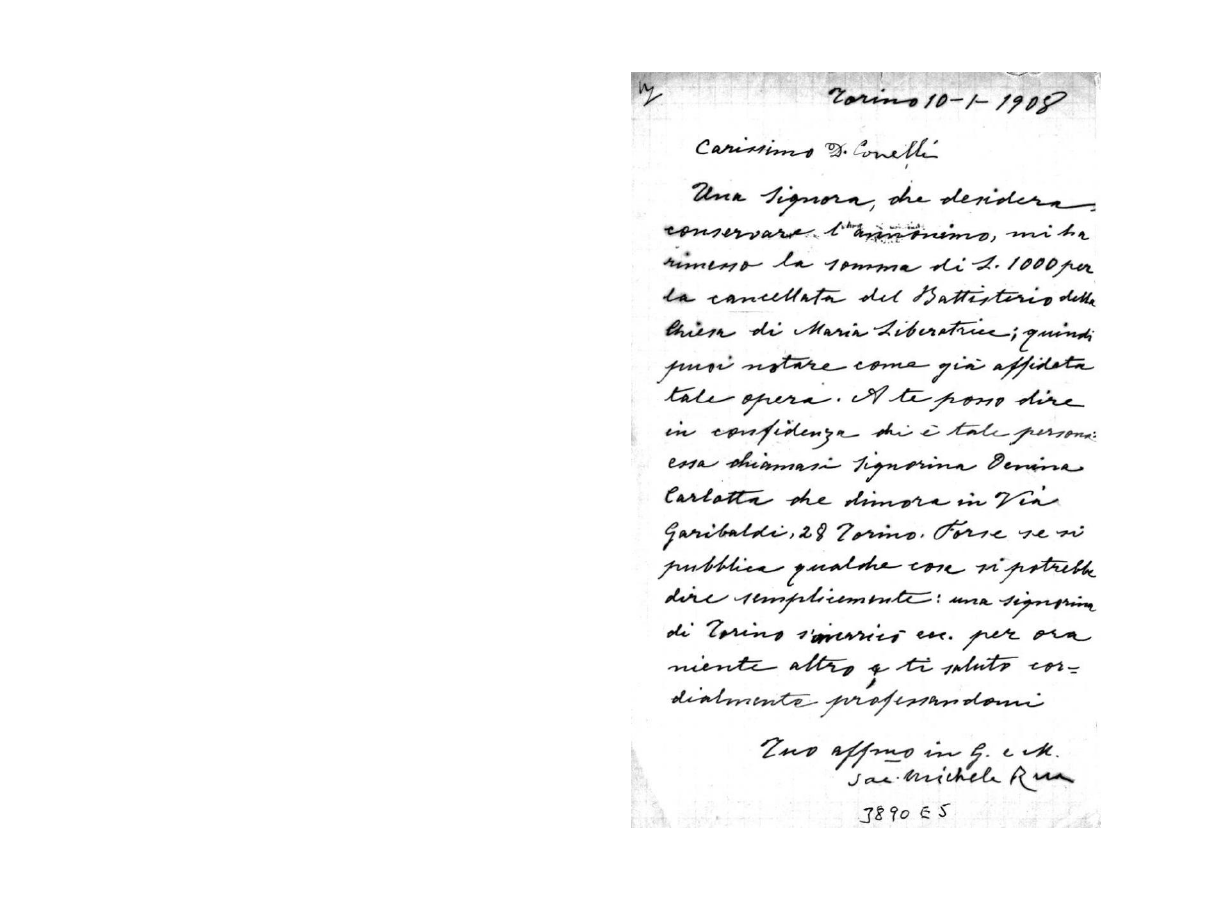 Torino 10-1-1908
Carissimo D. Conelli
Una Signora, che desidera
conservare l'annonimo, mi ha
rimesso la somma di L. 1000 per
la cancellata del Battisterio della
Chiesa di Maria Liberatrice; quindi
puoi notare come già affidata
tale opera. A te posso dire
in confidenza chi è tale persona:
essa chiamasi Signorina Denina
Carlotta che dimora in Via
Garibaldi, 28 Torino. Forse se si
pubblica qualche cosa si potrebbe
dire semplicemente: una signorina
di Torino s'incaricò ecc. per ora
niente altro e ti saluto cor=
dialmente professandomi
Tuo affmo in G. e M.
Sac. Michele Rua
3890 E 5